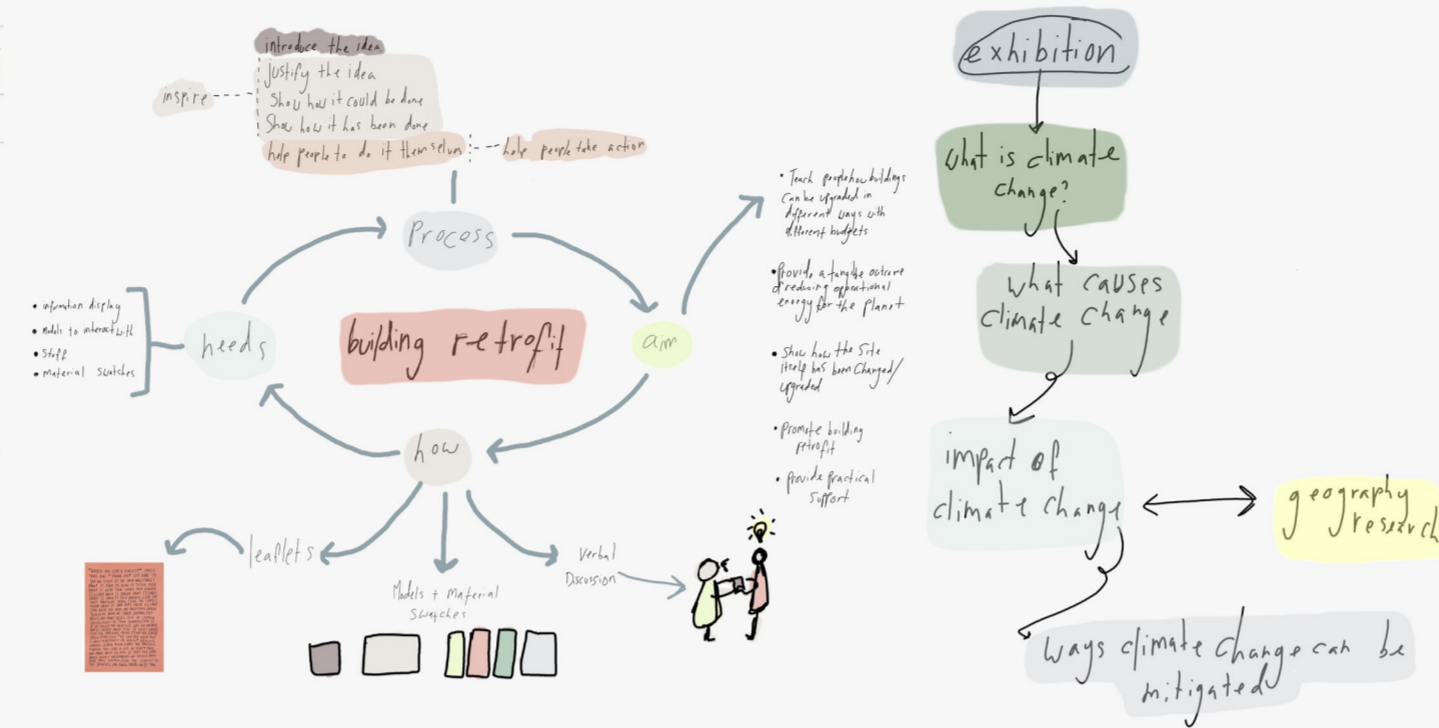 introduce the idea
Justify the idea
Show how it could be done
Show how it has been done
help people to do it themselves
inspire
help people take action
Process
building retrofit
needs
• information display
• Models to interact with
• Staff
• Material swatches
aim
• Teach people how buildings
can be upgraded in
different ways with
different budgets
• Provide a tangible outcome
of reducing operational
energy for the planet
• Show how the Site
itself has been Changed/
upgraded
• promote building
retrofit
• provide practical
support
how
leaflets
Models + Material
Swatches
Verbal
Discussion
exhibition
What is climate
change?
what causes
climate change
impact of
climate change
geography
research
ways climate change can be
mitigated